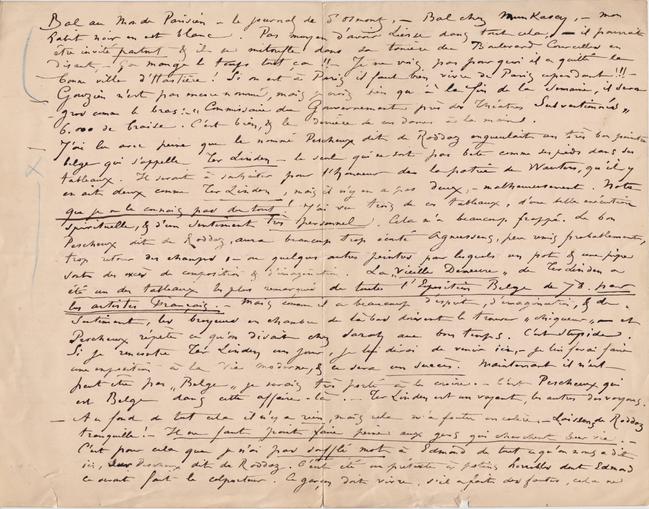 Bal au Monde Parisien – le journal de d'Osmont, – Bal chez Munkacsy, – mon
habit noir en est blanc. Pas moyen d'avoir Liesse dans tout cela, – il pourrait
être invité partout & il se dans sa tanière du Boulevard Courcelles en
disant, – ça mange le temps tout ça !!– Je ne vois pas pourquoi il a quitté la
bonne ville d'Hastière ! Si on est à Paris il faut bien vivre de Paris cependant !!!–
Gouzien n'est pas encore nommé, mais je crois bien qu'à la fin de la semaine, il sera
gros comme le bras : "Commissaire du Gouvernement près des Théâtres Subventionnés"
6.000 de braise. C'est bien, & le derrière de ces dames à la main.
J'ai lu avec peine que le nommé Pescheux dit de Roddaz engueulait un très bon peintre
belge qui s'appelle Ter Linden – le seul qui ne soit pas bête comme ses pieds dans ses
tableaux. Il serait à souhaiter pour l'honneur de la patrie de Wauters, qu'il y
en ait deux comme Ter Linden, mais il n'y en a pas deux, – malheureusement. Note
que je ne le connais pas du tout ! J'ai vu trois de ces tableaux, d'une belle exécution
spirituelle, & d'un sentiment très personnel. Cela m'a beaucoup frappé. Le bon
Pescheux dit de Roddaz, aura beaucoup trop écouté Agneessens, peu vous probablement,
trop retour des changes, – ou quelques autres peintres par lesquels un pot & une pipe
sortes des de composition & d'imagination. La "Vieille Demeure" de Ter Linden a
été un des tableaux les plus remarqués de toute l'Exposition Belge de 78. par
les artistes français. Mais comme il a beaucoup d'esprit, d'imagination, & de
sentiment, les broyeurs en chambre de là bas doivent le trouver "chiqueur" – et
Pescheux répète ce qu'on disait chez Sarah aux bons temps. C'est stupide
Si je rencontre Ter Linden un jour, je lui dirai de venir ici, – je lui ferai faire
une exposition à la Vie moderne, & ce sera un succès. Maintenant il n'est
peut être pas "Belge" je serais très porté à le croire. – C'est Pescheux qui
est Belge dans cette affaire-là. – Ter Linden est un voyant, les autres des voyous.
– Au fond de tout cela il n'y a rien, mais cela m'a foutu en colère, – Laissons de Roddaz
tranquille !– Il ne faut point faire peine aux gens qui cherchent leur vie. –
C'est pour cela que je n'ai pas soufflé mot à Edmond de tout ce qu'on nous a dit
ici, sur Pescheux dit de Roddaz. C'eut été un prétexte à potins horribles dont Edmond
ce serait fait le colporteur. Ce garçon doit vivre, s'il a foutu des fautes, cela ne